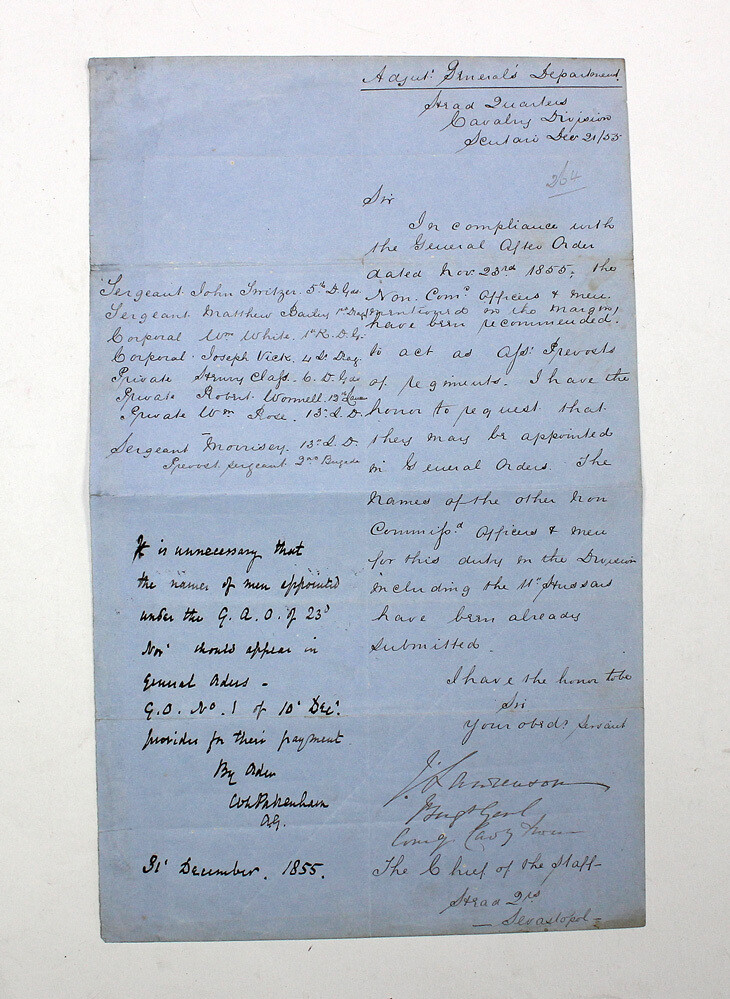 Adjut. General's Department.
Head Quarters
Cavalry Division
Scutari Dec 21/55
264
Sir
In compliance with
the General After Order
dated Nov. 23rd 1855. the
Non. Comd. Officers & Men
mentioned in the margin
have been recommended
to act as Asst. Provosts
of regiments. I have the
honor to request that
they may be appointed
in General Orders. The
names of the other Non
Commissd. Officers & Men
for this duty in the Division
including the 11th Hussars
have been already
submitted.
I have the honor to be
Sir
Your obedt. Servant
J. Lawrenson
Brigr Genl
Comg Cavy
The Chief of the Staff
Head Qrs
— Sevastopol —
Sergeant John Switzer. 5th D. Gds
Sergeant Matthew Bailey 1st Drags
Corporal Wm White. 1st K. D. Gs.
Corporal Joseph Vick. 4 Lt Drag.
Private Henry Class. 6. D. Gds
Private Robert Wonnell. 12th Lanc
Private Wm Rose. 13th L. D.
Sergeant Morrisey. 13th L. D.
Provost Sergeant 2nd Brigade
It is unnecessary that
the names of men appointed
under the G. A. O. of 23d
Novr should appear in
General Orders -
G.O. No. 1 of 10th Decr.
provides for their payment
By Order
WPakenham
A.G.
31st December. 1855.